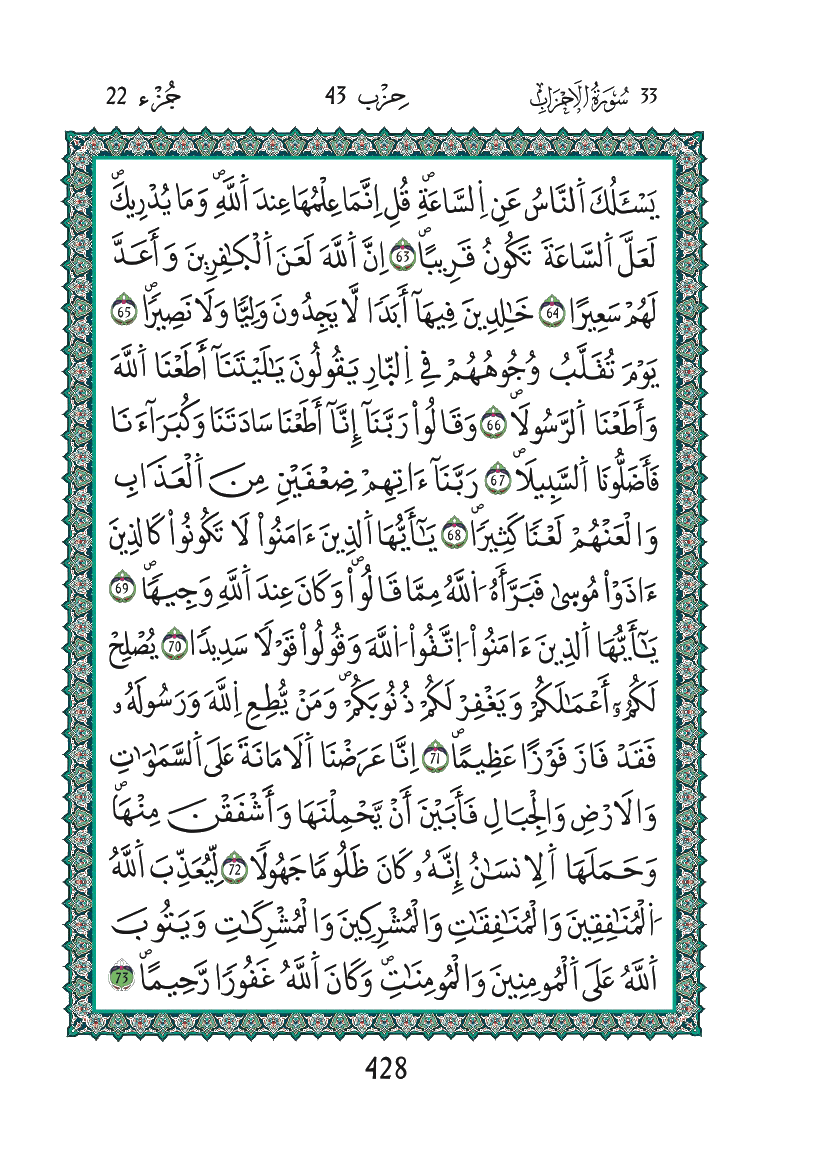 33 سُورَةُ الْأَحْزَابِ حِزْب 43 جُزْء 22
يَسْـَٔلُكَ اَ۬لنَّاسُ عَنِ اِ۬لسَّاعَةِۖ قُلِ اِنَّمَا عِلْمُهَا عِندَ اَ۬للَّهِۖ وَمَا يُدْرِيكَۖ
لَعَلَّ اَ۬لسَّاعَةَ تَكُونُ قَرِيباًۖ 63 اِنَّ اَ۬للَّهَ لَعَنَ اَ۬لْكٰفِرِينَ وَأَعَدَّ
لَهُمْ سَعِيراً 64 خَٰلِدِينَ فِيهَآ أَبَداٗ لَّا يَجِدُونَ وَلِيّاٗ وَلَا نَصِيراٗۖ 65
يَوْمَ تُقَلَّبُ وُجُوهُهُمْ فِے اِ۬لنّ۪ارِ يَقُولُونَ يَٰلَيْتَنَآ أَطَعْنَا اَ۬للَّهَ
وَأَطَعْنَا اَ۬لرَّسُولَاۖ 66 وَقَالُواْ رَبَّنَآ إِنَّآ أَطَعْنَا سَادَتَنَا وَكُبَرَآءَنَا
فَأَضَلُّونَا اَ۬لسَّبِيلَاۖ 67 رَبَّنَآ ءَاتِهِمْ ضِعْفَيْنِ مِنَ اَ۬لْعَذَابِ
وَالْعَنْهُمْ لَعْناٗ كَثِيراٗۖ 68 يَٰٓأَيُّهَا اَ۬لذِينَ ءَامَنُواْ لَا تَكُونُواْ كَالذِينَ
ءَاذَوْاْ مُوس۪يٰ فَبَرَّأَهُ اُ۬للَّهُ مِمَّا قَالُواْۖ وَكَانَ عِندَ اَ۬للَّهِ وَجِيهاٗۖ 69
يَٰٓأَيُّهَا اَ۬لذِينَ ءَامَنُواْ اُ۪تَّقُواْ اُ۬للَّهَ وَقُولُواْ قَوْلاٗ سَدِيداٗ 70 يُصْلِحْ
لَكُمُۥٓ أَعْمَٰلَكُمْ وَيَغْفِرْ لَكُمْ ذُنُوبَكُمْۖ وَمَنْ يُّطِعِ اِ۬للَّهَ وَرَسُولَهُۥ
فَقَدْ فَازَ فَوْزاً عَظِيماًۖ 71 اِنَّا عَرَضْنَا اَ۬لَامَانَةَ عَلَي اَ۬لسَّمَٰوَٰتِ
وَالَارْضِ وَالْجِبَالِ فَأَبَيْنَ أَنْ يَّحْمِلْنَهَا وَأَشْفَقْنَ مِنْهَاۖ
وَحَمَلَهَا اَ۬لِانسَٰنُ إِنَّهُۥ كَانَ ظَلُوماٗ جَهُولاٗ 72 لِّيُعَذِّبَ اَ۬للَّهُ
اُ۬لْمُنَٰفِقِينَ وَالْمُنَٰفِقَٰتِ وَالْمُشْرِكِينَ وَالْمُشْرِكَٰتِ وَيَتُوبَ
اَ۬للَّهُ عَلَي اَ۬لْمُومِنِينَ وَالْمُومِنَٰتِۖ وَكَانَ اَ۬للَّهُ غَفُوراٗ رَّحِيماٗۖ 73
428